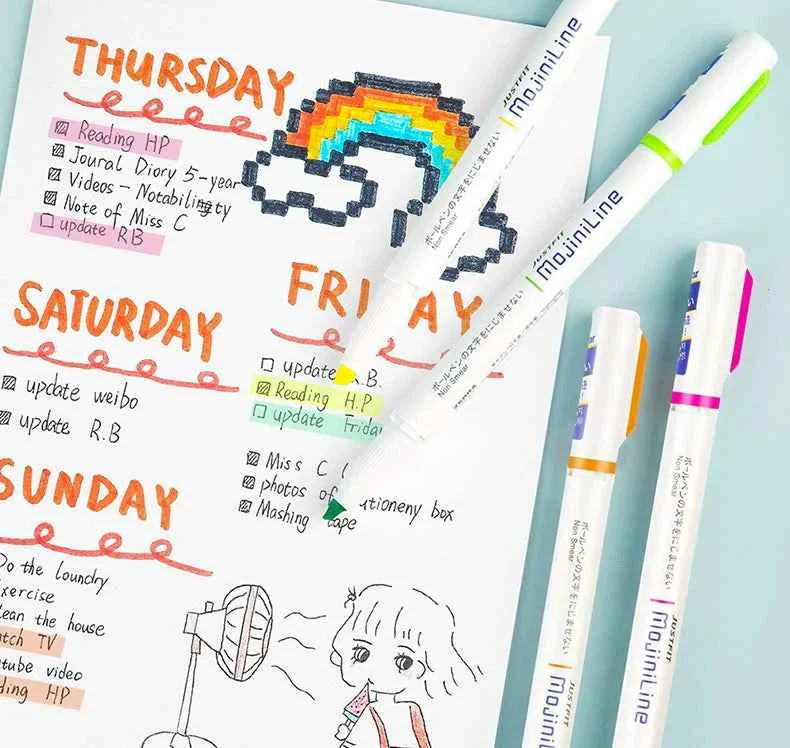 THURSDAY
Reading HP
Joural Diary 5-year
Videos - Notability
Note of Miss C
update RB
SATURDAY
update weibo
update R.B
FRI AY
update R.B.
Reading H.P
update Friday
Miss C
photos of
tioneny box
Mashing tape
SUNDAY
Do the loundry
xercise
lean the house
tch TV
tube video
ding HP
JUSTFIT
MojiniLine
ボールペンの文字をにじませない
Non Smear
ZEBRA
JUSTFIT
MojiniLine
ボールペンの文字をにじませない
Non Smear
ZEBRA
ボールペンの文字をにじませない
Non Smear
JUSTFIT
MojiniLine
ボールペンの文字をにじませない
Non Smear
JUSTFIT
MojiniLine